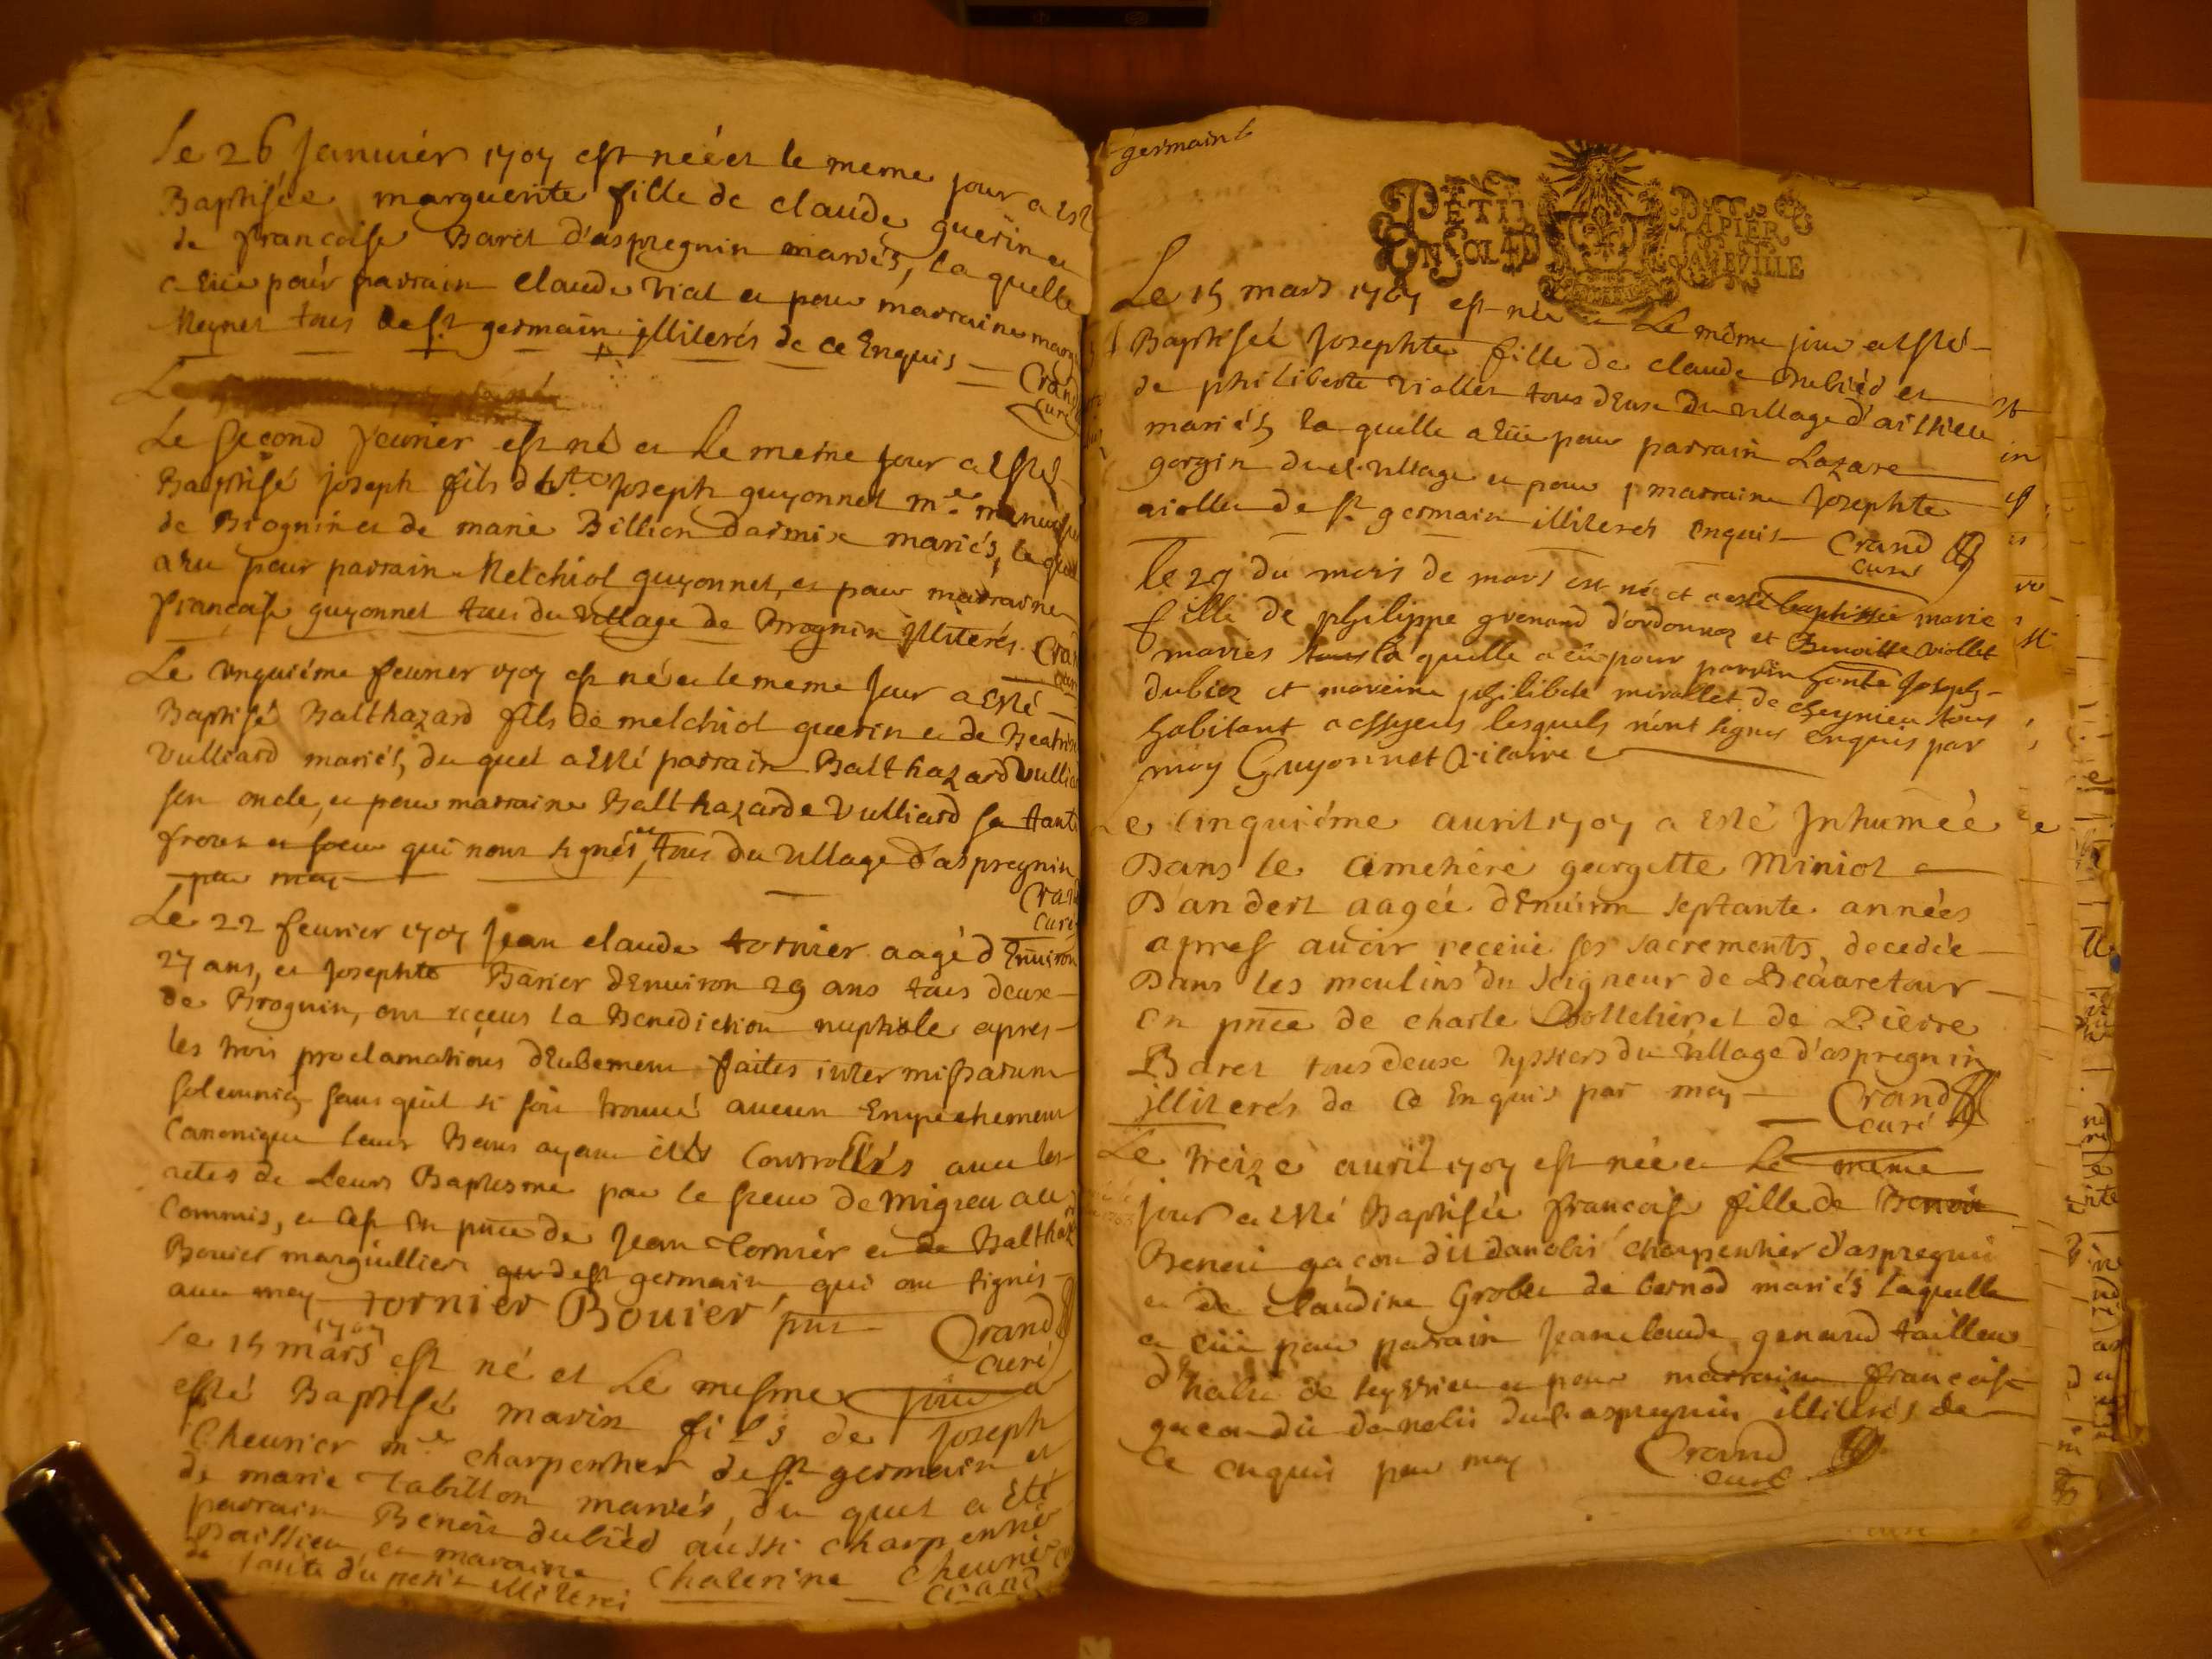 Le 26 Januiér 1707 est néé et le meme jour a esté
Baptisée marguerite fille de claude guerin et
de francoise Baret d'aspregnin mariés, la quelle
a eue pour parrain Claude Vial et pour marraine marg
Meynet tous de st germain illiterés de ce Enquis
Crand
curé
Le
Le second feurier est né et le meme jour a esté
Baptisé joseph fils d hte joseph guyonnet me
de Brognin et de marie Billion darmix mariés, lequel
a eu pour parrain Melchiol guyonnet, et pour marraine
francoise guyonnet tous du village de Brognin illiterés. Crand
Le cinquiéme feurier 1707 est né et le meme jour a esté
Baptisé Balthazard fils de melchiol guerin et de Beatrise
Vulliard mariés, du quel a esté parrain Balthazard Vulliard
son oncle, et pour marraine Balthazarde Vulliard sa tante
freres et soeur qui nont signés, tous du village d'aspregnin
par moy
Crand
curé
Le 22 feurier 1707 Jean claude tornier aagé d Enuiron
27 ans, et Josephte Barier d'Enuiron 29 ans tous deux
de Brognin, ont receus la Benediction nuptiale apres
les trois proclamations deubement faites inter missarum
solemnia, sans quil se soit trouué aucun Empechement
Canonique leurs Bans ayant estés Controllés auec les
actes de Leurs Baptesme par le sieur de migieu au
Commis, et cest En pnce de Jean Tornier et de Balthaz
Bouier marguillier de st germain, qui ont signés
auec moy tornier Bouier pnt
Crand
curé
1707
Le 15 mars est né et Le mesme jour a
esté Baptisé marin fils de Joseph
Cheurier me charpentier de st germain et
de marie Tabillon mariés, du quel a esté
parrain Benoit dubied aussi charpentier
Daillieu et maraine Chaterine Cheurier
de tante du petit illiterés
Crand
germain le
PETIT PAPIER
Le 15 mars 1707 est née et Le même jour a esté
Baptisée Josephte fille de claude dubied et
de philiberte viollet tous deux du village d'aillieu
mariés, la quelle a eue pour parrain Lazare
gorgin dud. village et pour marraine Josephte
viollet de st germain illiterés Enquis
Crand
curé
le 29 du mois de mars est né et a esté baptissée marie
fille de philippe grenand d'ordonnaz et Benoitte viollet
maries la quelle a eu pour parrin honte Joseph
dubiez et mareine philibete mirallet de cheynieu tous
habitant a essyeus lesquels n'ont signes enquis par
moy Guyonnet Vicaire
Le cinquiéme auril 1707 a esté Inhuméé
Dans le cimetiére georgette Miniot
D'andert aagée d'Enuiron septante années
apres auoir receüe ses sacrements, decedée
Dans les moulins du seigneur de Beauretour
En pnce de charle Bottelier et de Pierre
Baret tous deux tyssiers du village d'aspregnin
illiterés de ce Enquis par moy
Crand
curé
Le treize auril 1707 est née et Le meme
jour a esté Baptisée francoise fille de Benoit
Benoit gacon dit danobis charpentier d'aspregnin
et de Claudine Grobet de bernod mariés laquelle
a eüe pour parrain Jean claude genand tailleur
d'habit de seyssieu et pour marraine francoise
gacon dit danobis dud. aspregnin illiterés de
Ce enquis par moy
Crand
curé